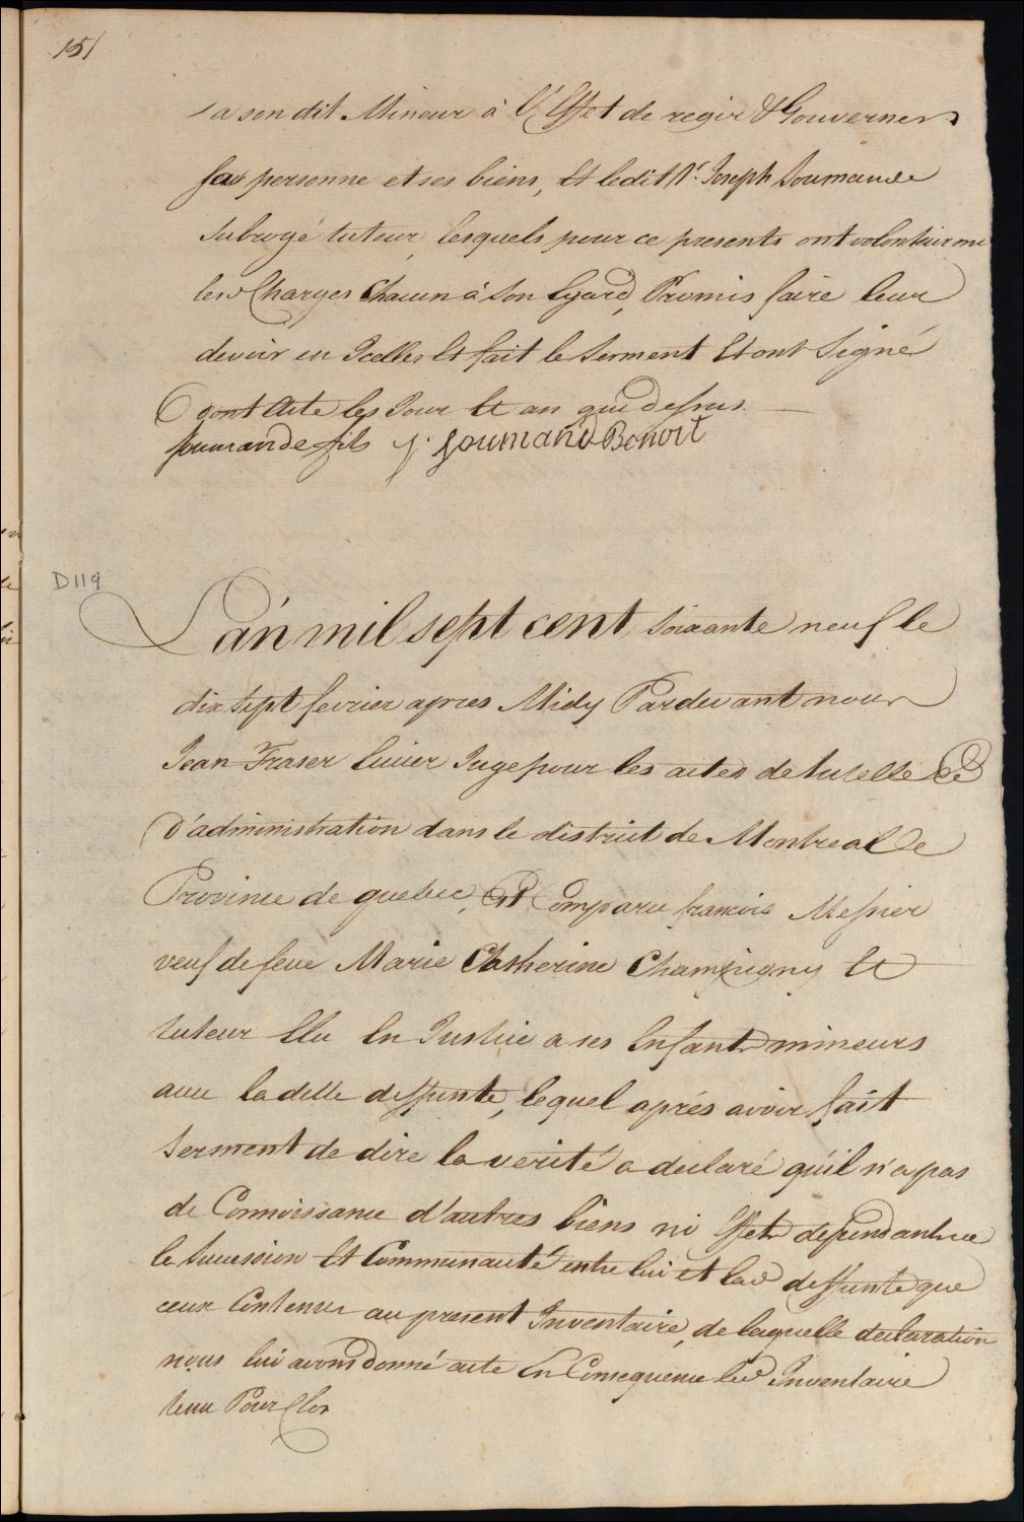 151
a son dit Mineur à l'Effet de regir & Gouverner
sa personne et ses biens, Et ledit Sr. Joseph Soumande
subrogé tuteur, lesquels pour ce presents ont volontairem
lesd Charges Chacun à Son Egard, Promis faire leur
devoir en Icelles Et fait le Serment Et ont Signé
dont Acte les Jour Et an que dessus.
soumande fils J. Soumand Benoit
D119
L'an mil sept cent soixante neuf le
dix sept fevrier apres Midy Pardevant nous
Jean Fraser Ecuier Juge pour les actes de tutelle Et
D'administration dans le district de Montreal
Province de quebec, Est Comparu francois Messier
veuf de feue Marie Catherine Champigny Et
tuteur Elu En Justice a ses Enfants mineurs
avec ladelle deffunte, lequel aprés avoir fait
Serment de dire la verité a declaré qu'il n'a pas
de Connoissance d'autres biens ni Effets dependants de
la Succession Et Communauté entre lui et lad deffunte que
ceux Contenus au present Inventaire, de laquelle declaration
nous lui avons donné acte En Consequence led Inventaire
tenu Pour Clos